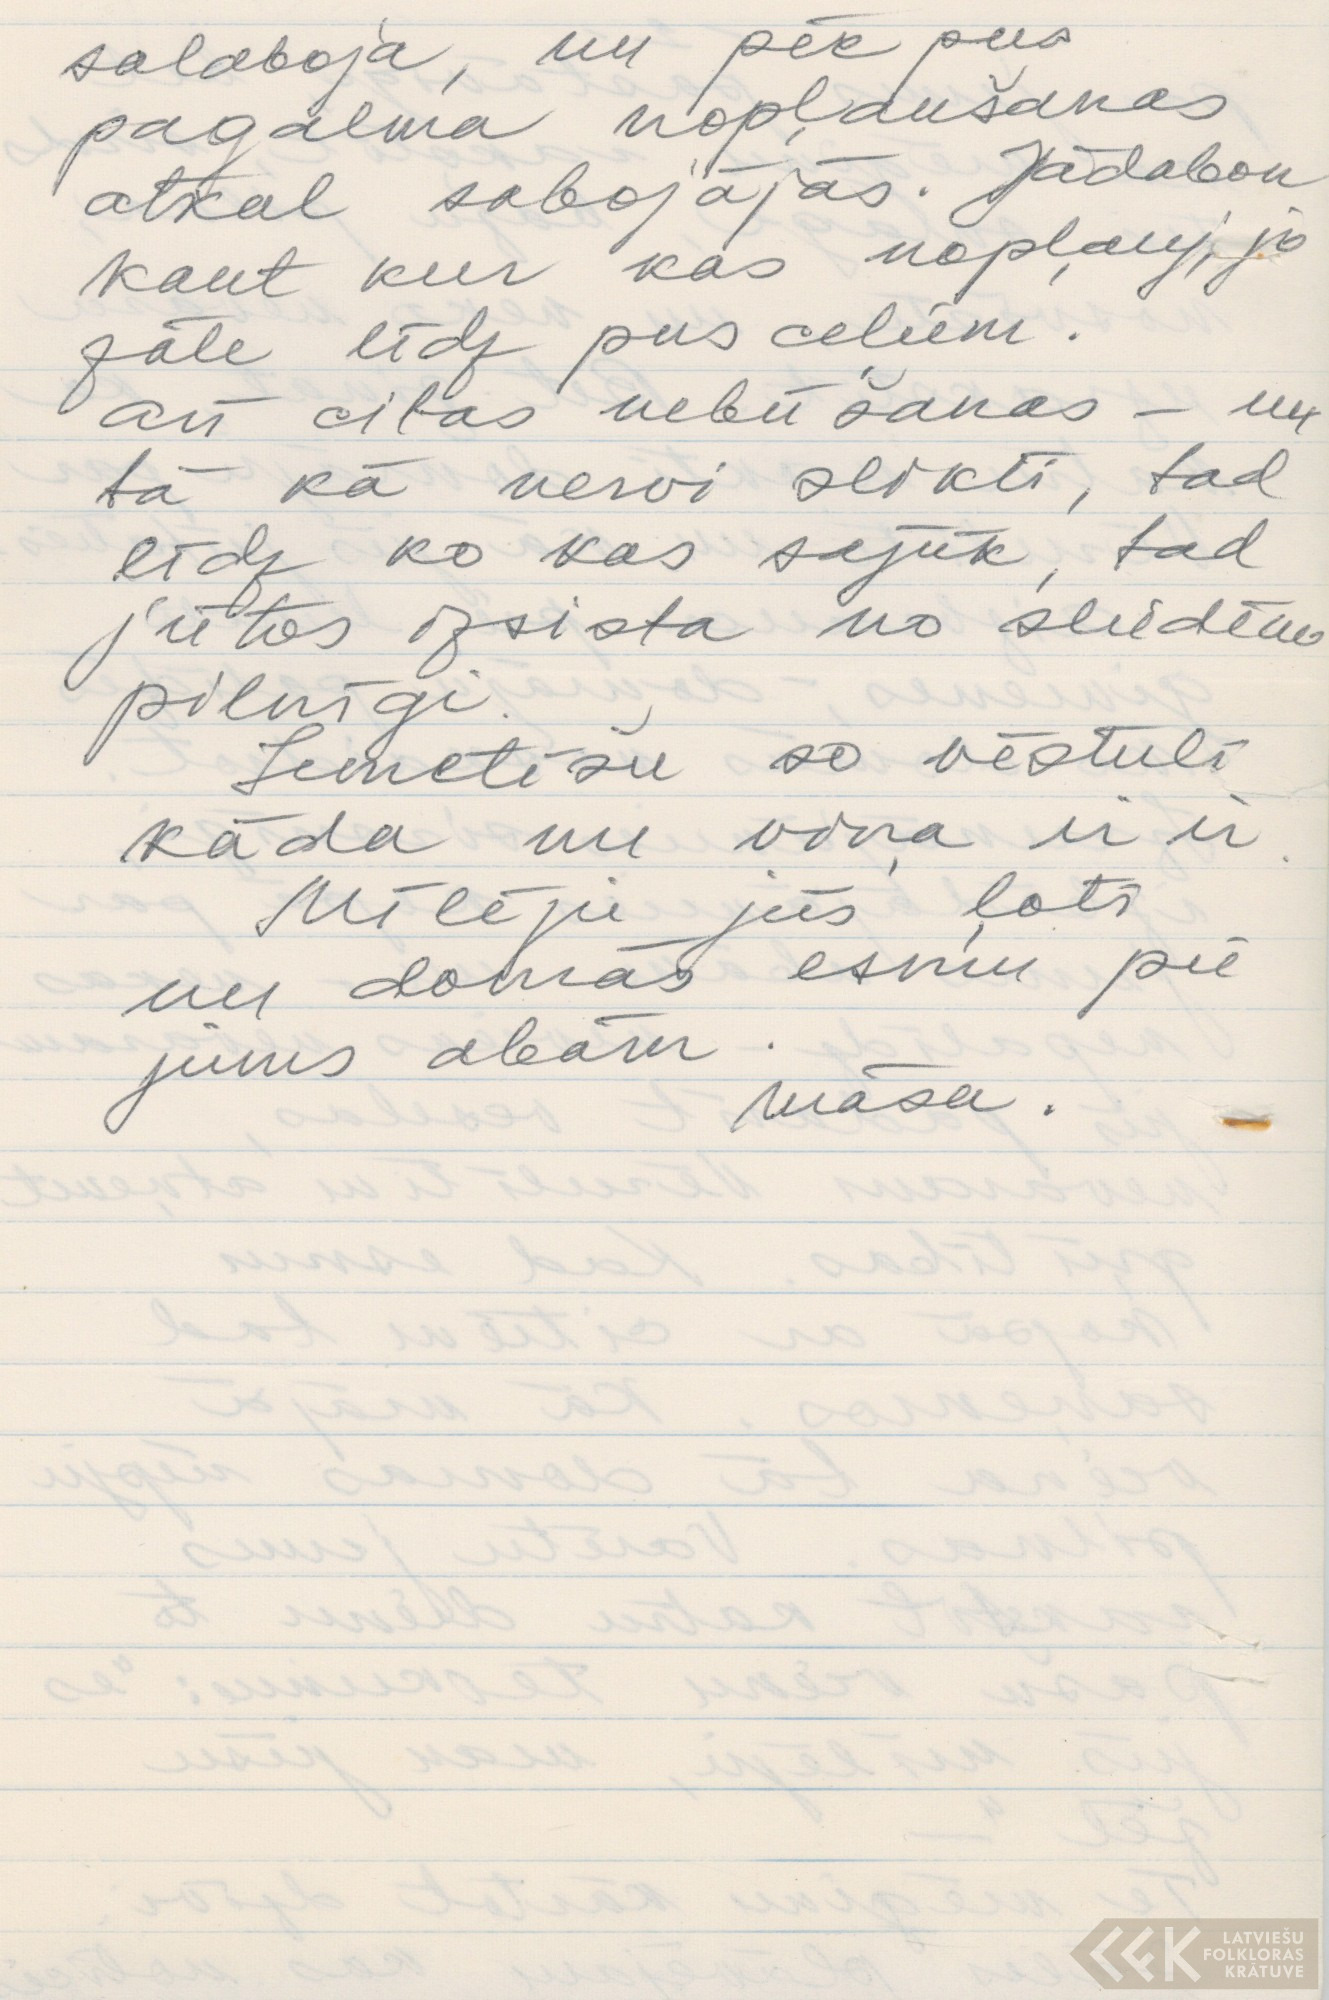 salaboja, un pēc pus
pagalma nopļaušanas
atkal sabojājās. Jādabon
kaut kur kas nopļauj, jo
zāle līdz pus ceļiem.
arī citas nebūšanas – un
tā kā nervi slikti, tad
līdz ko kas sajūk, tad
jūtos izsista no sliedēm
pilnīgi.
Izmetīšu so vēstuli
kāda nu viņa ir ir.
Mīlēju jūs ļoti
un domās esmu pie
jums abām.
māsa.
LATVIEŠU
FOLKLORAS
KRĀTUVE